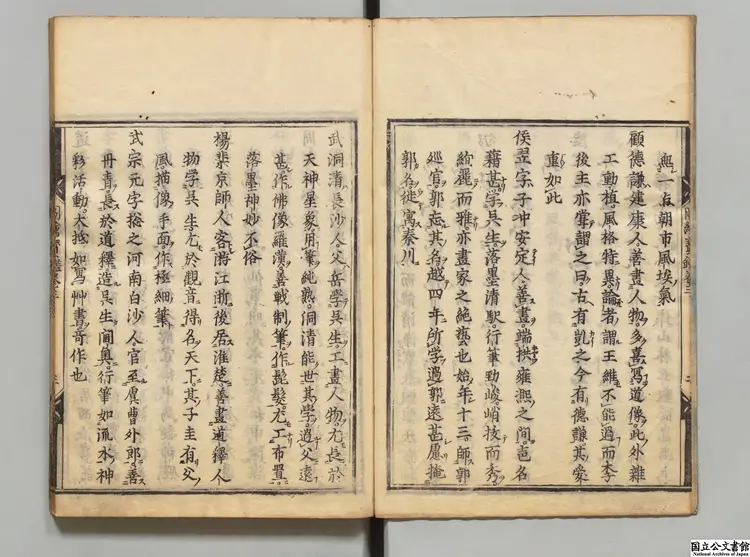 無一点朝市風埃氣
顧德謙建康人善畫人物多喜寫道像此外雜
工動植風格特異論者謂王維不能過而李
後主亦嘗謂之曰古有凱之今有德謙其愛
重如此
侯翌字子冲安定人善畫端拱雍熙之間邑名
藉甚学吳生落墨清駃行筆勁峻峭拔而秀
絢麗而雅亦畫家之絶藝也始年十三師郭
巡官郭忘其名越四年所学過郭遠甚愿掩
郭名徙寓秦川
武洞清長沙人父岳学吳生工畫人物尤長於
天神星象用筆純熟洞清能世其学過父遠
甚作佛像羅漢善戰制筆作髭髮尤工布置
落墨神妙不俗
楊棐京師人客游江浙後居淮楚善畫道釋人
物学吳生尤於觀音得名天下其子圭有父
風捕像手面作極細筆
武宗元字揔之河南白沙人官至虞曹外郎善
丹青長於道釋造吳生閫奧行筆如流水神
彩活動大抵如寫艸書奇作也
国立公文書館
National Archives of Japan